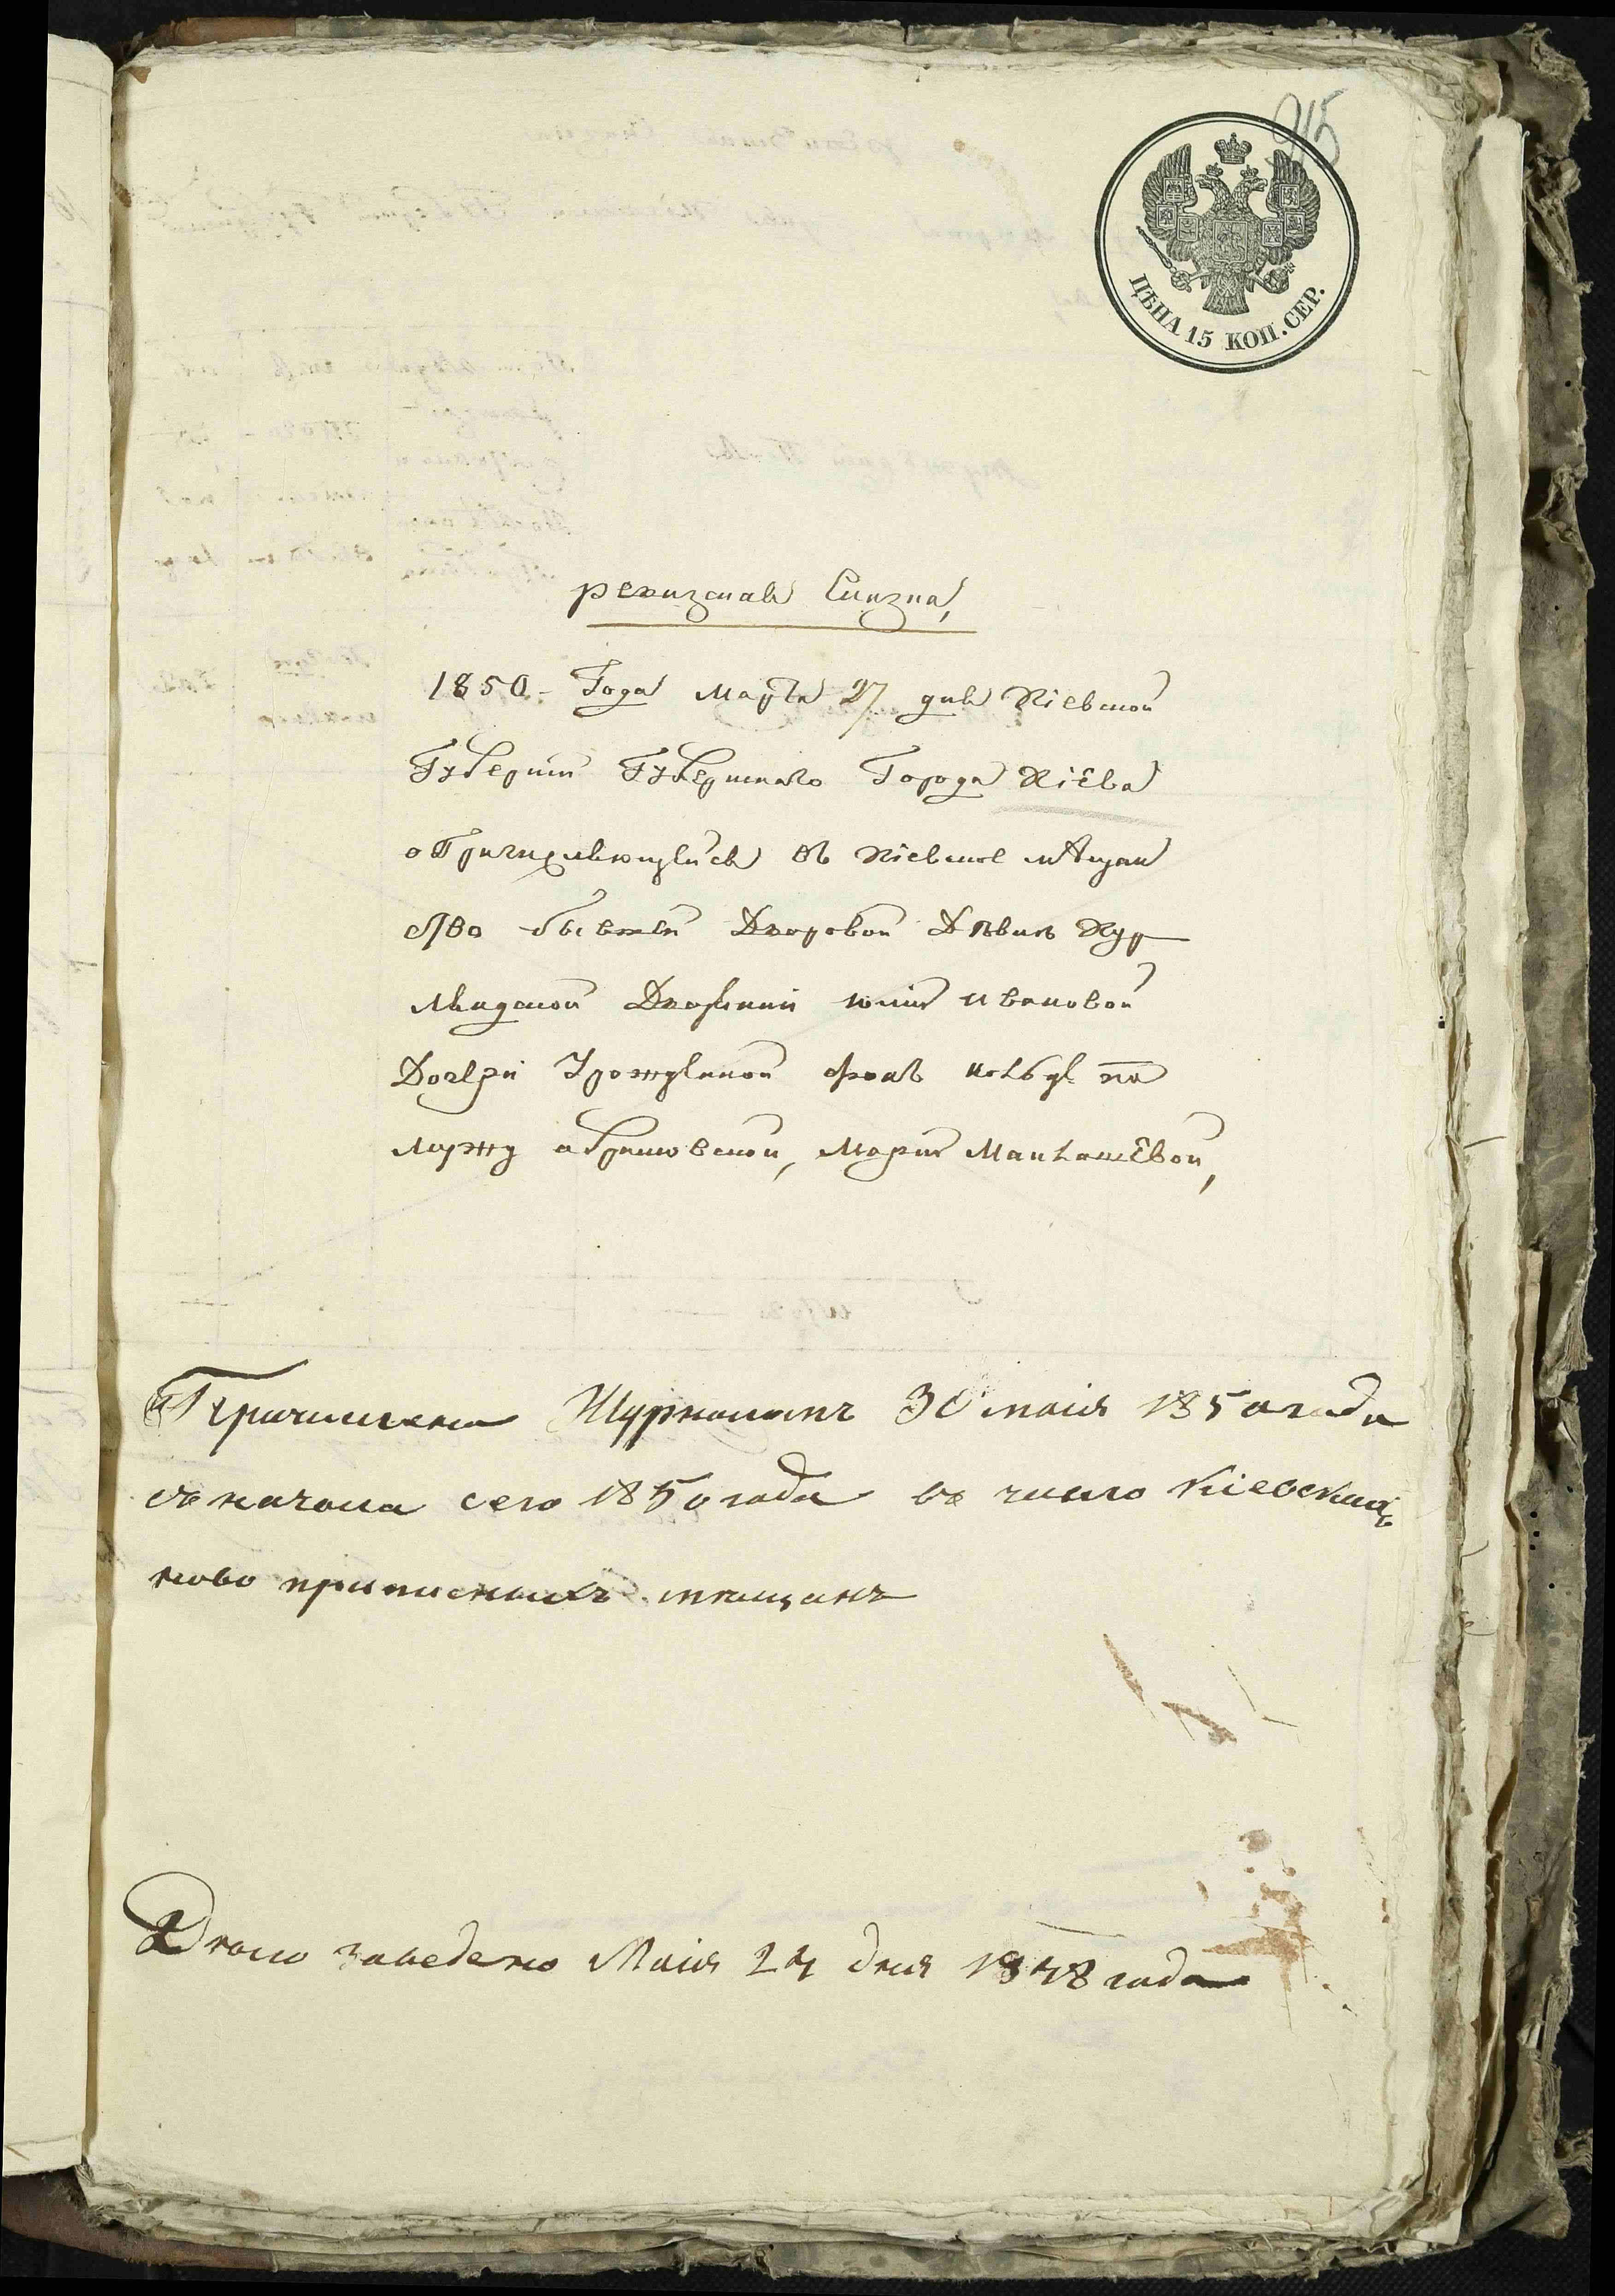 915
ЦѢНА 15 КОП. СЕР.
ревизская Сказка,
1850 - Года Марта 27 дня Кіевской
Губерніи Губернскаго Города Кіева
о Причисляющейся въ Кіевское мѣщан
ство бывшей Дворовой Дѣвки Кур
ляндской Дворянки юліи Ивановой
Дочери Урожденной фонъ по
мужу Марии
Причислена Журналомъ 30 маія 1850 года
съ начала сего 1850 года въ число Кіевскихъ
ново приписныхъ мещанъ
Дело заведено Маія 24 дня 1848 года